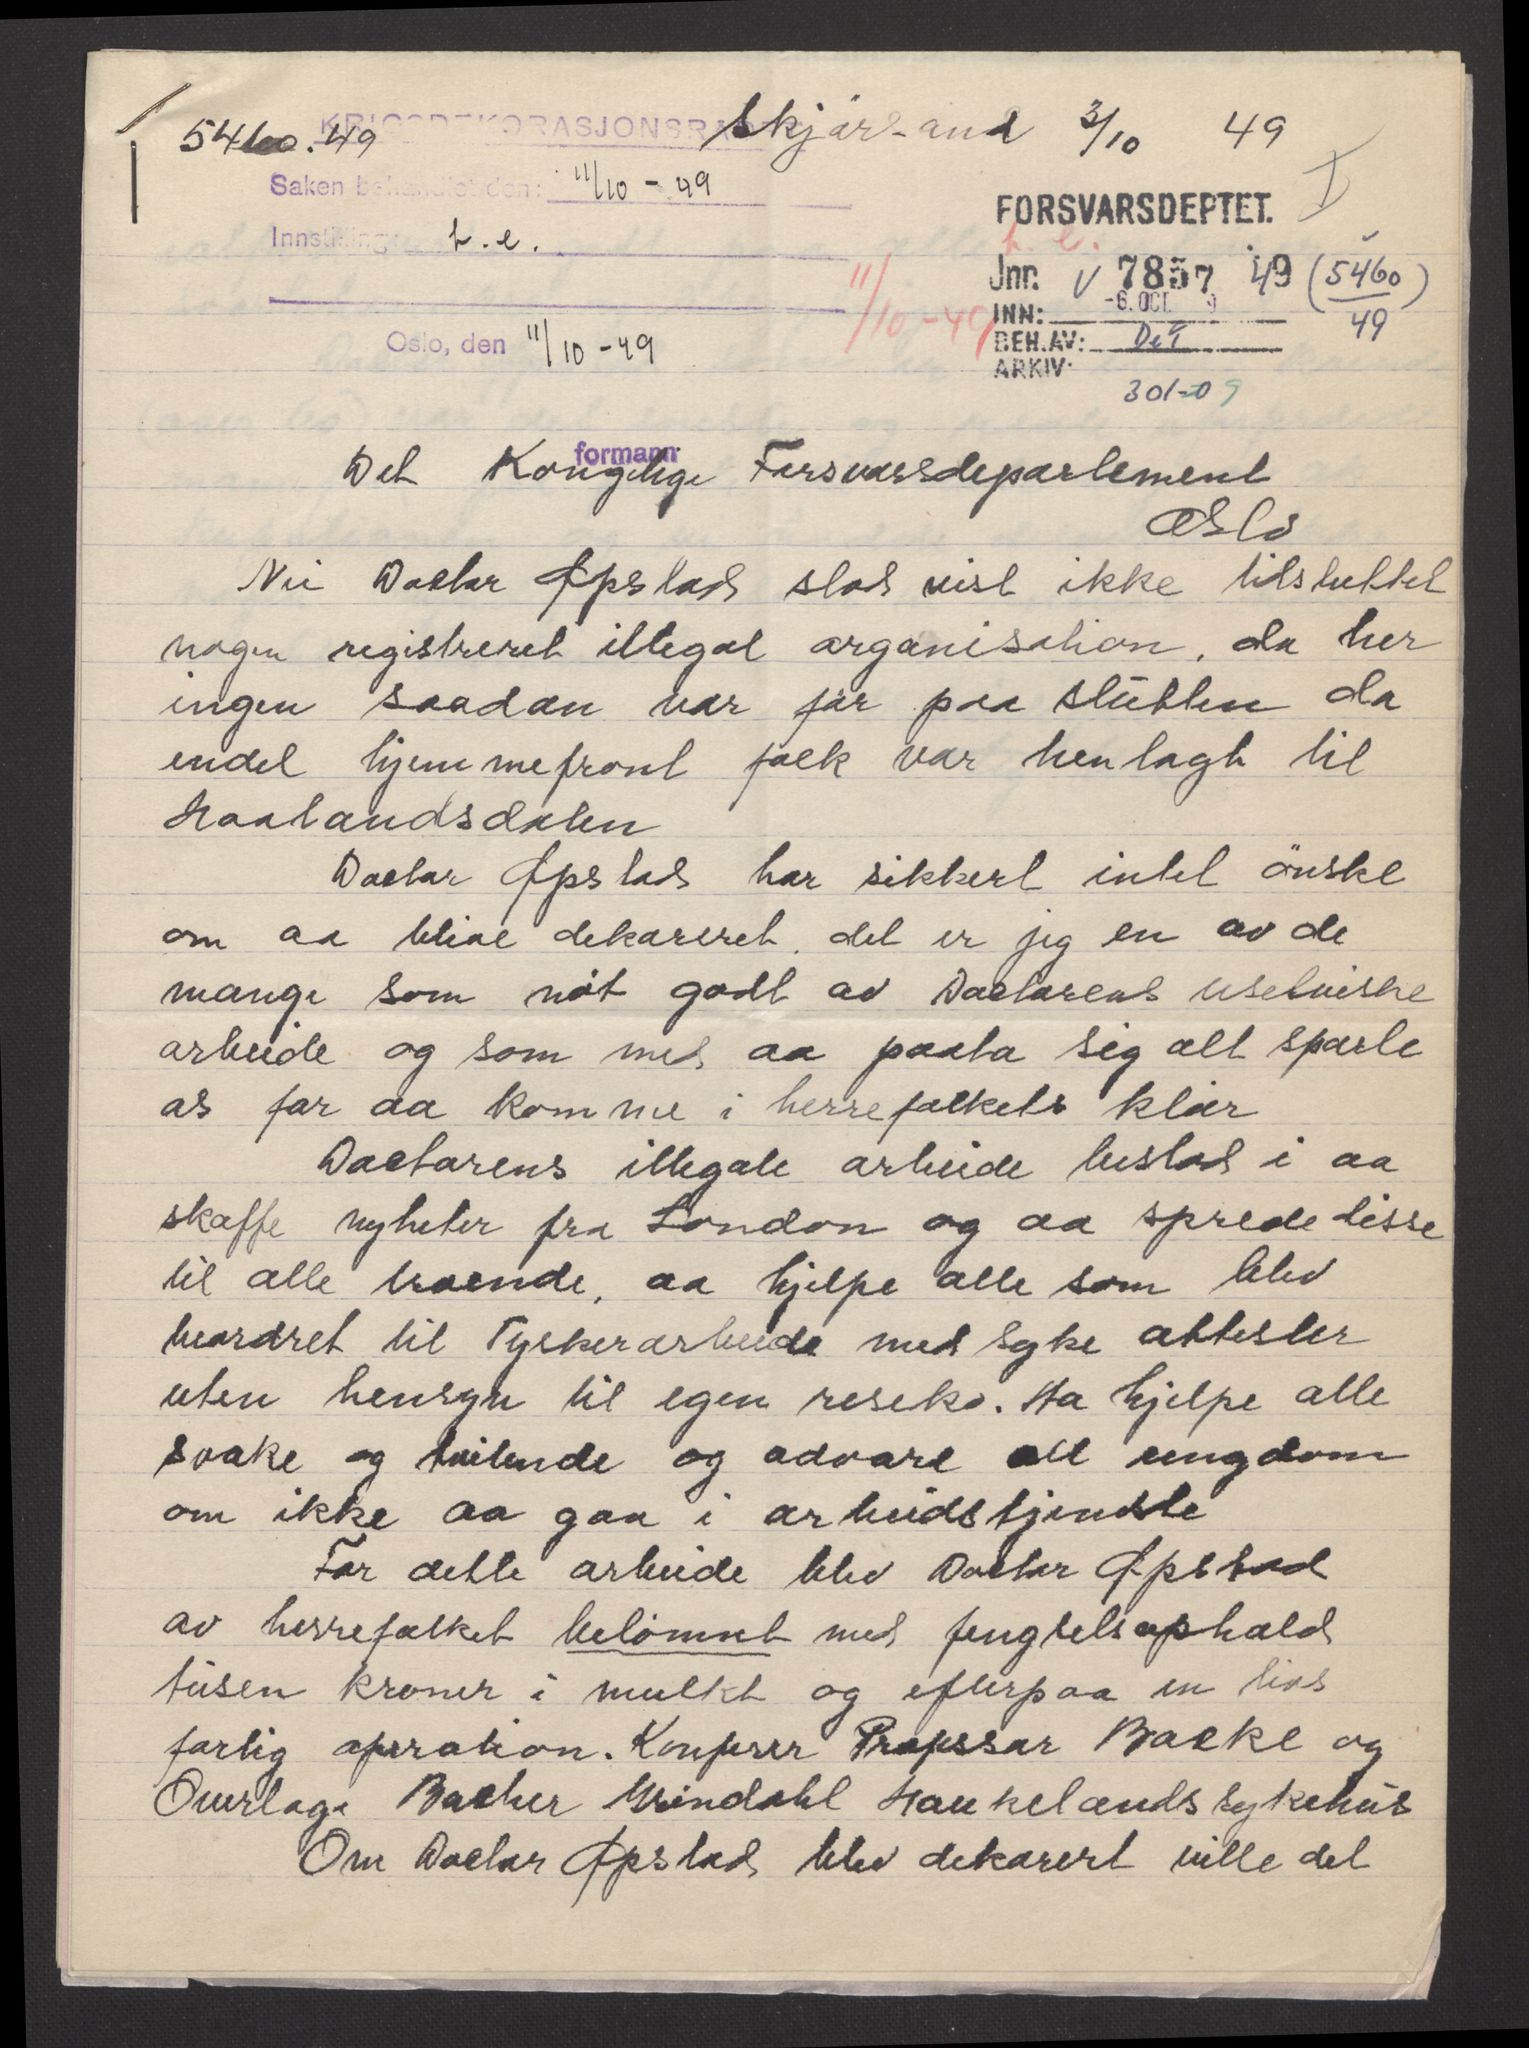 5460.49
KRIGSDEKORASJONSRÅDET
Skjærsand 3/10 49
Saken behandlet den: 11/10 - 49
Innstilling: h.e.
Oslo, den 11/10 - 49
formann
I
FORSVARSDEPTET.
h.e.
11/10 - 49
Jnr. V 7857 49 (5460/49)
INN: -6.OCT. 9
BEH.AV: DeT
ARKIV:
301-09
Det Kongelige Forsvarsdepartement
Oslo
Nei Doctor Opstad stod vist ikke tilsluttet
nogen registreret illegal organisation, da her
ingen saadan var før paa slutten da
endel hjemmefront folk var henlagt til
Haalandsdalen
Doctor Opstad har sikkert intet ønske
om aa blive dekoreret, det er jeg en av de
mange som nøt godt av Doctorens uselviske
arbeide og som med aa paata sig alt sparte
os for aa komme i herrefolkets klør
Doctorens illegale arbeide bestod i aa
skaffe nyheter fra London og aa sprede disse
til alle troende, aa hjelpe alle som blev
beordret til Tyskerarbeide med syke attester
uten hensyn til egen reseko. Aa hjelpe alle
svake og tvilende og advare all ungdom
om ikke aa gaa i arbeidstjeneste
For dette arbeide blev Doctor Opstad
av herrefolket belønnet med fengselsophold
tusen kroner i mulkt og efterpaa en livs
farlig operation. Konferer Professor Backe og
Overlage Bacher Grøndahl Haukelands sykehus
Om Doctor Opstad blev dekorert ville det